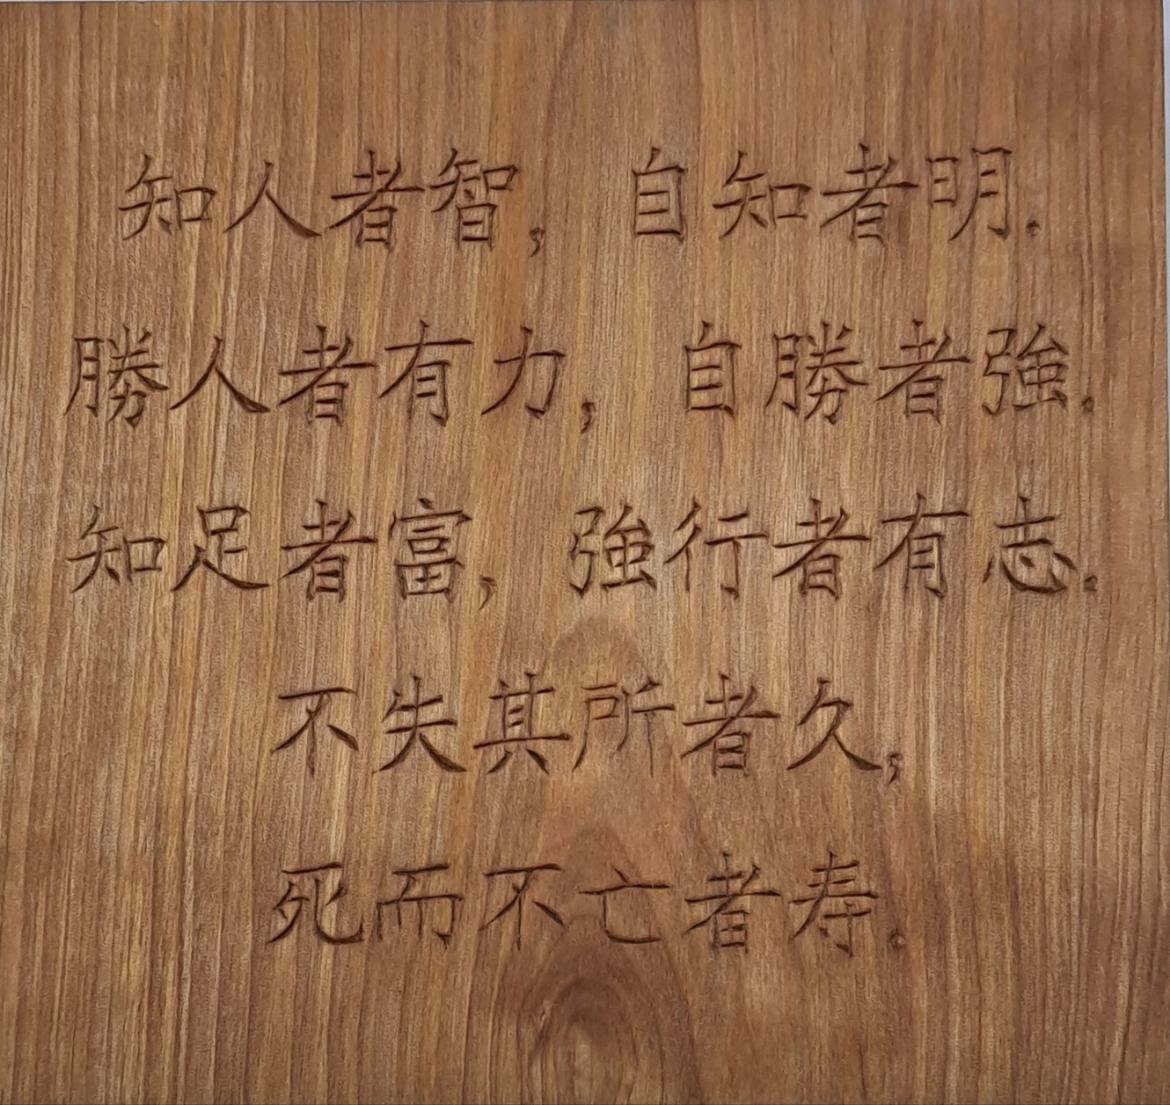 知人者智，自知者明。
勝人者有力，自勝者強。
知足者富，強行者有志。
不失其所者久，
死而不亡者寿。